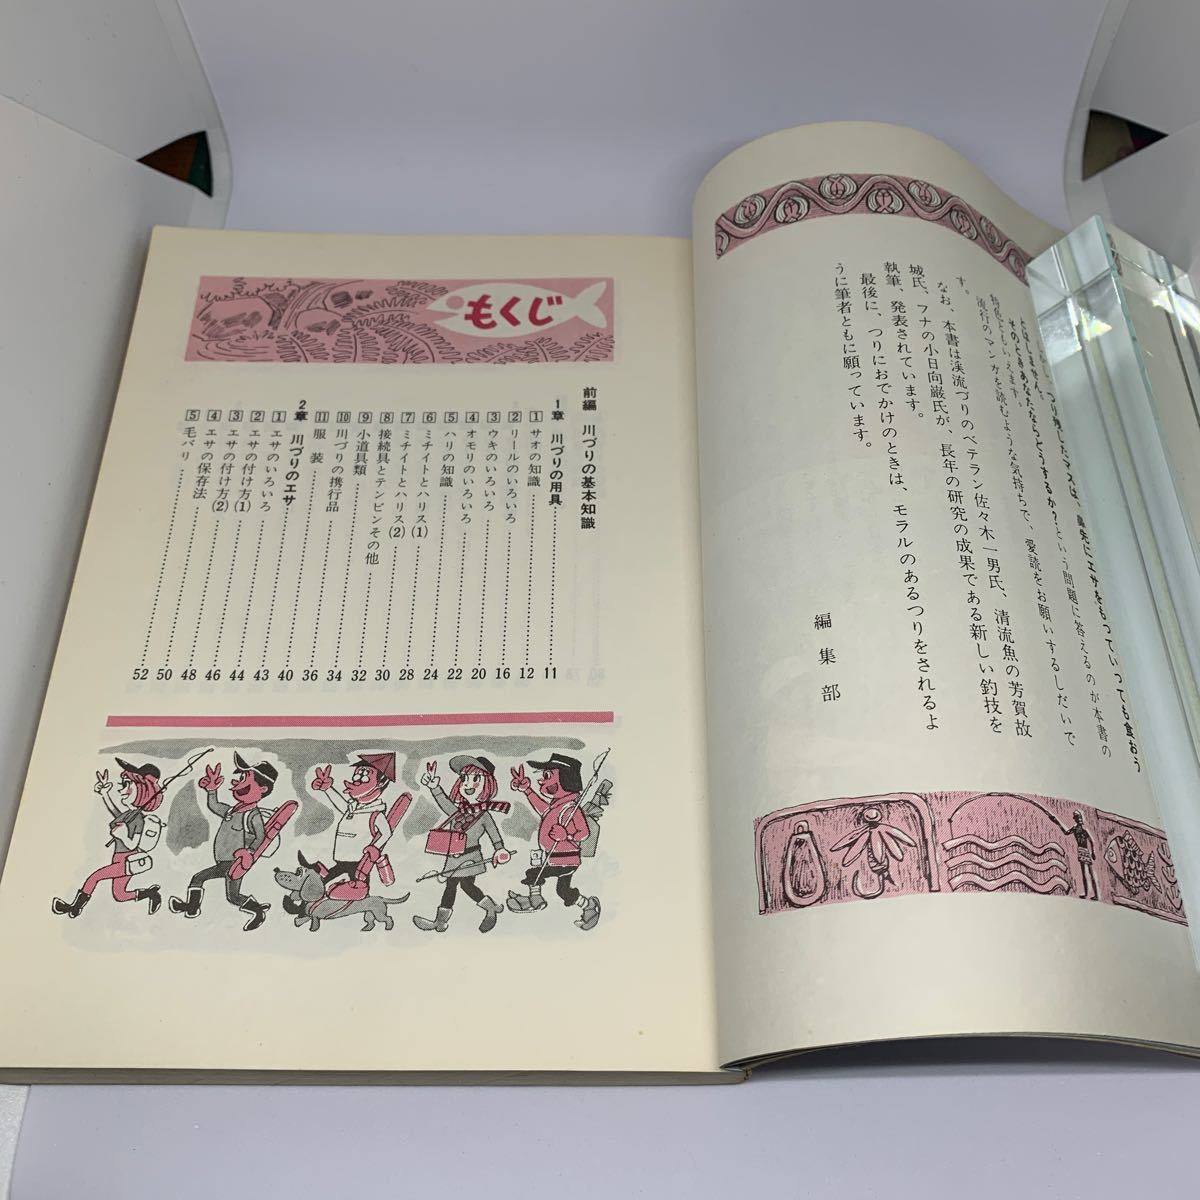 つり残したマスは、鼻先にエサをもっていっても食おう
とはしません。
そのときあなたならどうするか？という問題に答えるのが本書の
特色ともいえます。
流行のマンガを読むような気持ちで、愛読をお願いするしだいで
す。
なお、本書は渓流づりのベテラン佐々木一男氏、清流魚の芳賀故
城氏、フナの小日向巌氏が、長年の研究の成果である新しい釣技を
執筆、発表されています。
最後に、つりにおでかけのときは、モラルのあるつりをされるよ
うに筆者ともに願っています。
編集部
もくじ
前編 川づりの基本知識
1章 川づりの用具 11
1 サオの知識 12
2 リールのいろいろ 16
3 ウキのいろいろ 20
4 オモリのいろいろ 22
5 ハリの知識 24
6 ミチイトとハリス(1) 28
7 ミチイトとハリス(2) 30
8 接続具とテンビンその他 32
9 小道具類 34
10 川づりの携行品 36
11 服装 40
2章 川づりのエサ 43
1 エサのいろいろ 44
2 エサの付け方(1) 46
3 エサの付け方(2) 48
4 エサの保存法 50
5 毛バリ 52